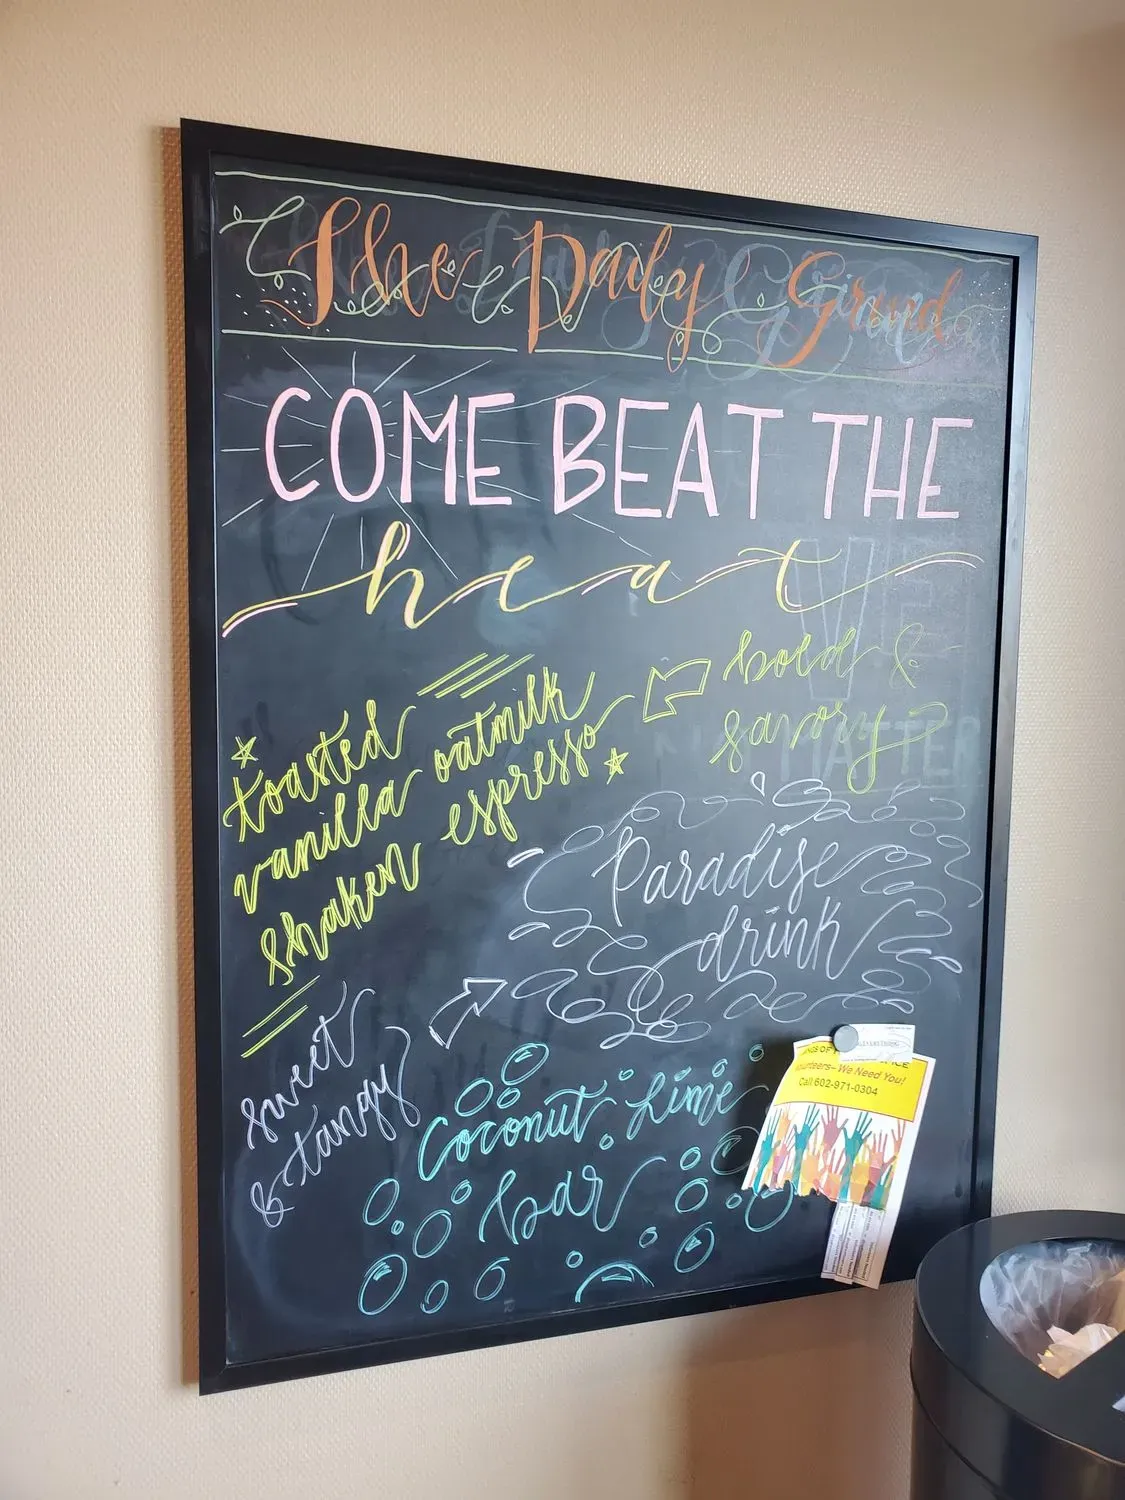 The Daily Grind
COME BEAT THE
heat
toasted
vanilla oatmilk
shaken espresso
bold &
savory
Paradise
drink
sweet
& tangy
Coconut Lime
bar
WE
MATTER
Volunteers- We Need You!
Call 602-971-0304